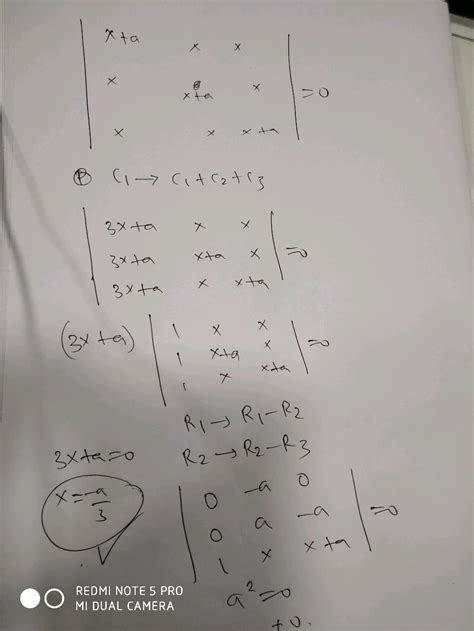 | x+a x x |
| x x+a x | =0
| x x x+a |
C₁ → C₁+C₂+C₃
| 3x+a x x |
| 3x+a x+a x | =0
| 3x+a x x+a |
(3x+a) | 1 x x |
| 1 x+a x | =0
| 1 x x+a |
R₁→R₁-R₂
R₂→R₂-R₃
3x+a=0
x=-a/3
| 0 -a 0 |
| 0 a -a | =0
| 1 x x+a |
a²=0
≠0.
REDMI NOTE 5 PRO
MI DUAL CAMERA